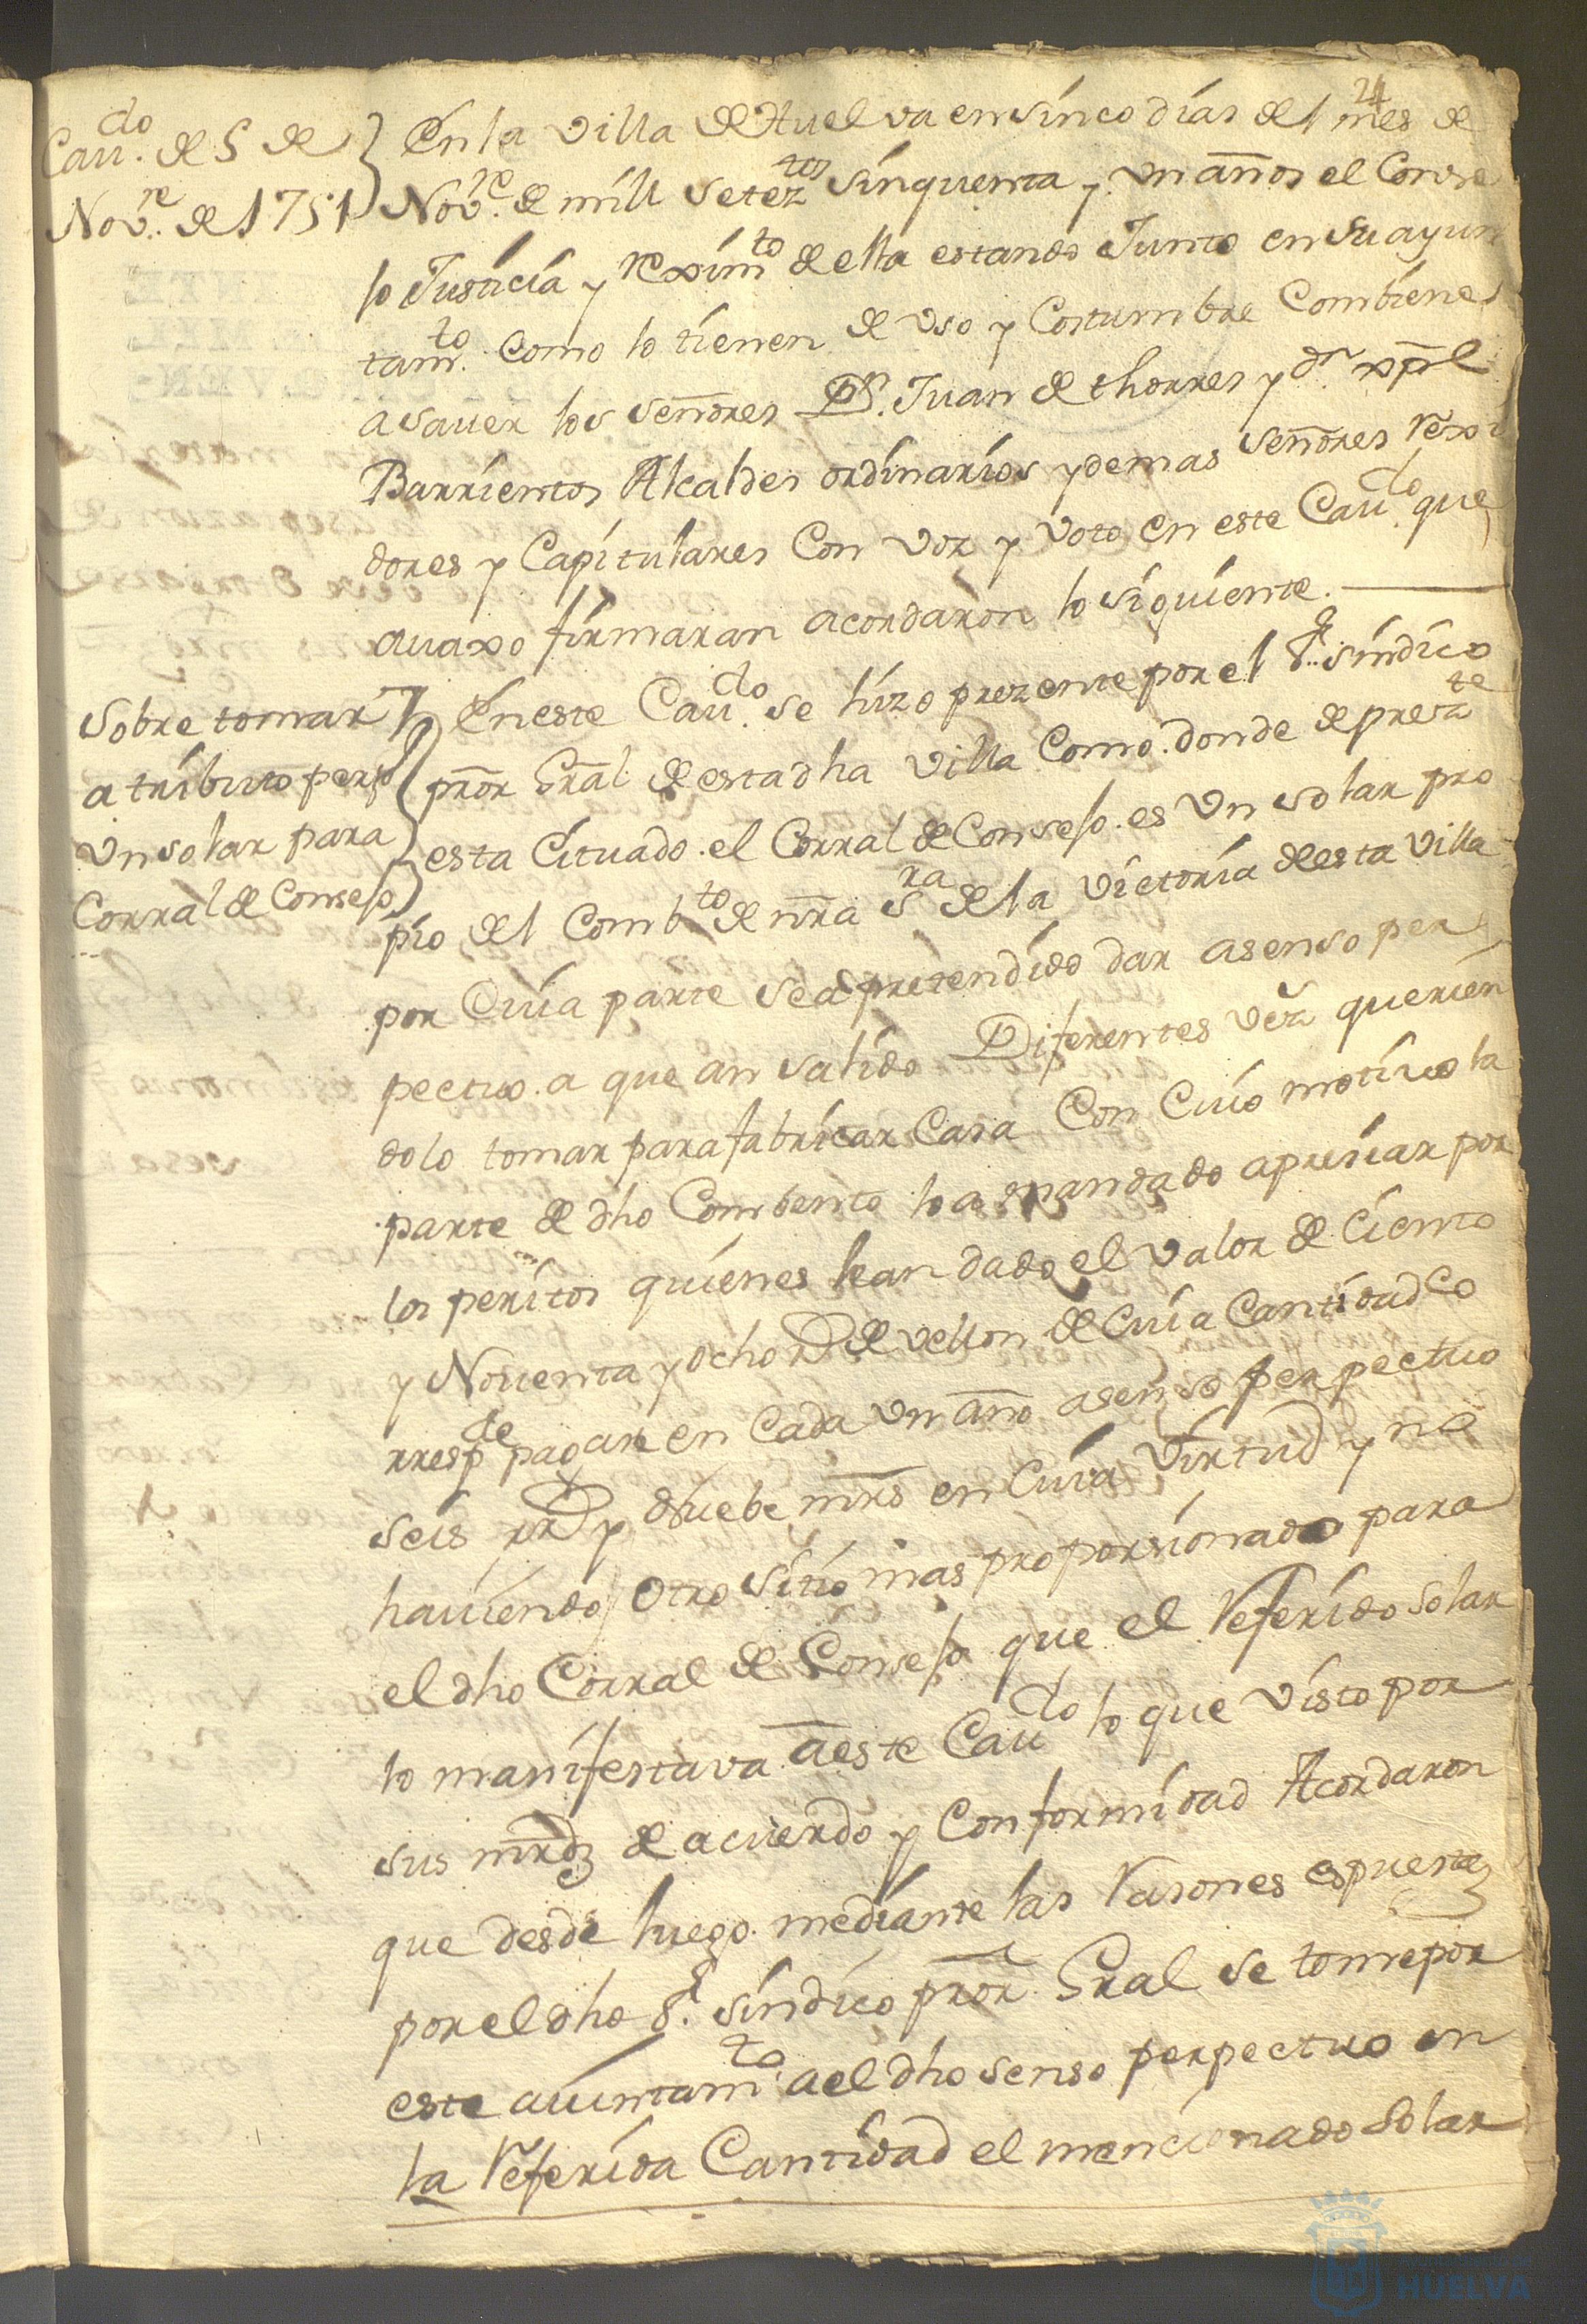 24
Cau.do de 5 de
Nov.re de 1751
En la villa de Huelva en sinco dias del mes de
Nov.re de mill setez.tos sinquenta y un años el Conse
jo Justicia y reximto de ella estando Junto en su ayun
tam.to como lo tienen de uso y Costumbre Combiene
a sauer los señores Dn. Juan de thorres y dn xpl
Barrientos Alcaldes ordinarios y demas señores rexi
dores y Capitulares Con voz y voto en este Cau.do que
auaxo firmaran acordaron lo siguiente.
Sobre tomar
a tributo perpo
un solar para
Corral de Consejo
En este Cau.do se hizo prezente por el S.r sindico
pror Gral de esta dha villa Como donde de prezte
esta cituado el Corral de Consejo es un solar pro
pio del Combto de nra Sra de la Victoria de esta villa
por Cuia parte se a pretendido dar a senso per
pectuo a que an salido Diferentes vez querien
dolo tomar para fabricar Casa Con Cuio motiuo la
parte de dho Combento lo a mandado apresiar por
los peritos quienes le an dado el valor de Ciento
y Nouenta y ocho rs de vellon de Cuia Cantidad Co
rrespde pagar en Cada un año a senso perpectuo
seis rrs y nuebe mrs en Cuia Virtud y no
hauiendo otro sitio mas proporsionado para
el dho Corral de Consejo que el Referido solar
lo manifestava a este Caudo lo que visto por
sus mrdz de acuerdo y Conformidad Acordaron
que desde luego mediante las Rasones espuestaz
por el dho S.r sindico pror Gral se tome por
este auintamto a el dho senso perpectuo en
la Referida Cantidad el mencionado Solar
HUELVA